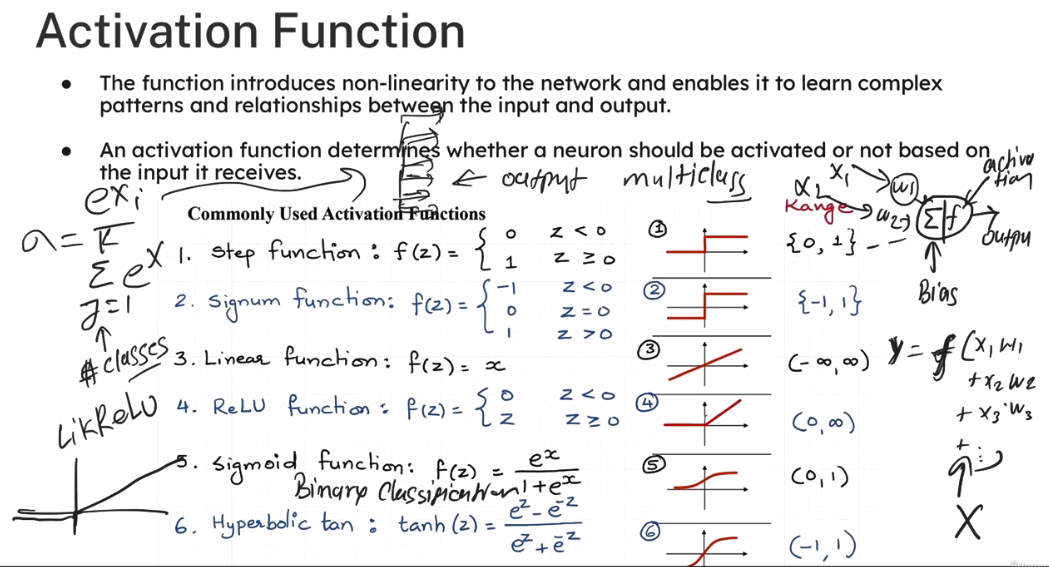 Activation Function
• The function introduces non-linearity to the network and enables it to learn complex
patterns and relationships between the input and output.
• An activation function determines whether a neuron should be activated or not based on
the input it receives.
← output multiclass
x₁ w₁ activation
x₂ w₂ Σ f output
Bias
Commonly Used Activation Functions
Range
1. Step function : f(z) = { 0 z < 0
1 z ≥ 0
① {0, 1}
2. Signum function: f(z) = { -1 z < 0
0 z = 0
1 z > 0
② {-1, 1}
3. Linear function : f(z) = x
③ (-∞, ∞)
4. ReLU function : f(z) = { 0 z < 0
z z ≥ 0
④ (0, ∞)
5. Sigmoid function: f(z) = eˣ / 1+eˣ
Binary Classification
⑤ (0, 1)
6. Hyperbolic tan : tanh (z) = e^z - e^-z / e^z + e^-z
⑥ (-1, 1)
σ = e^xi / K Σ e^x
j=1
# classes
LikReLU
y = f (x₁ w₁
+ x₂ w₂
+ x₃·w₃
+ ...
X